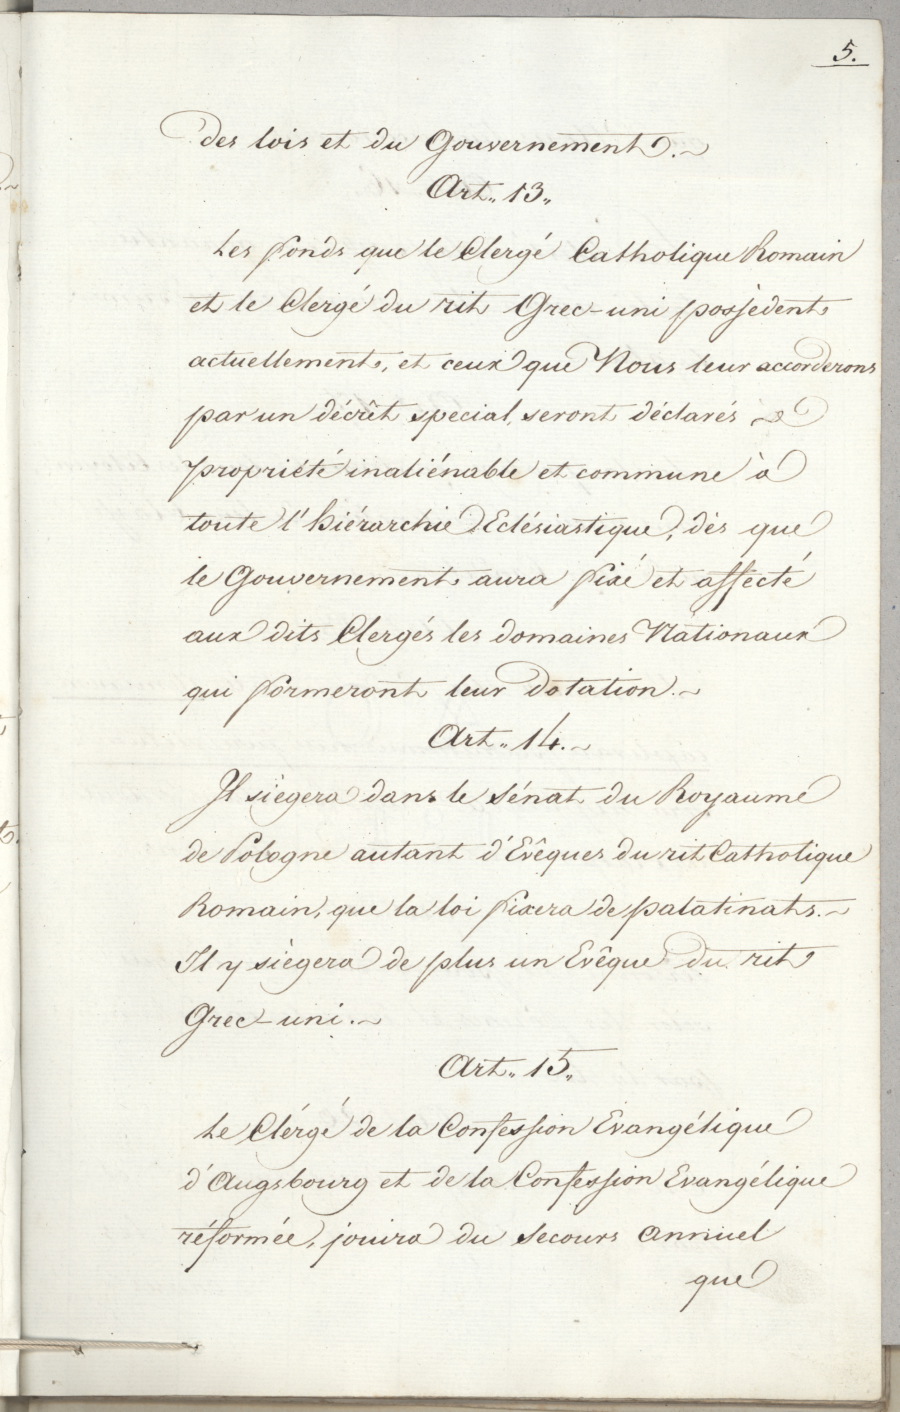 5.
des lois et du Gouvernement.~
Art. 13.
Les fonds que le Clergé Catholique Romain
et le Clergé du rit Grec-uni possèdent
actuellement, et ceux que Nous leur accorderons
par un décrêt special, seront déclarés
propriété inaliénable et commune à
toute l'hiérarchie Eclésiastique, dès que
le Gouvernement aura fixé et affecté
aux dits Clergés les domaines Nationaux
qui formeront leur dotation.~
Art. 14.~
Il siègera dans le Sénat du Royaume
de Pologne autant d'Evêques du rit Catholique
Romain, que la loi fixera de palatinats.~
Il y siègera de plus un Evêque du rit
Grec-uni.~
Art. 15.
Le Clérgé de la Confession Evangélique
d'Augsbourg et de la Confession Evangélique
réformée, jouira du Secours Annuel
que